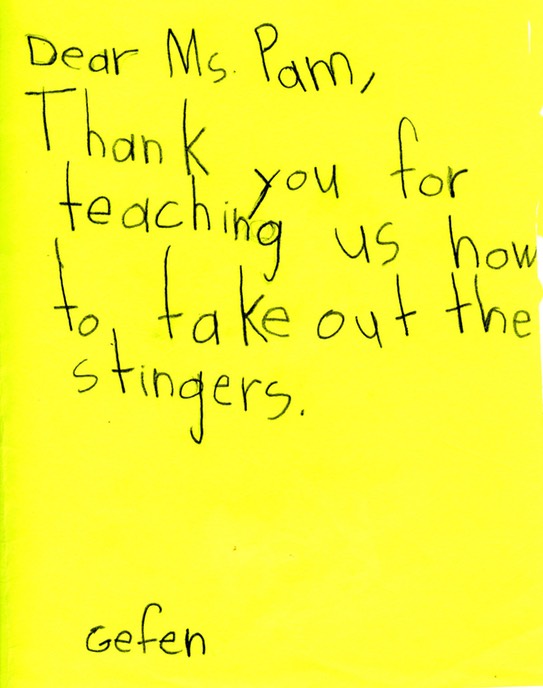 Dear Ms. Pam,
Thank you for
teaching us how
to take out the
stingers.
Gefen